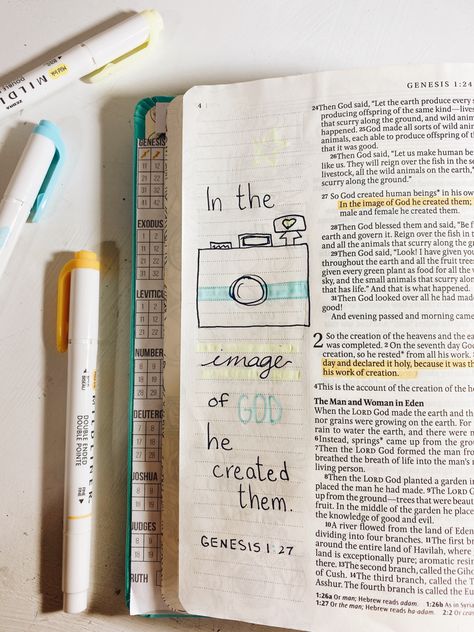 GENESIS 1:24
4
24Then God said, "Let the earth produce every s
producing offspring of the same kind—lives
that scurry along the ground, and wild anim
happened. 25God made all sorts of wild anim
animals, each able to produce offspring of th
that it was good.
26Then God said, "Let us make human be
like us. They will reign over the fish in the se
livestock, all the wild animals on the earth,*
scurry along the ground."
27 So God created human beings* in his ow
In the image of God he created them;
male and female he created them.
28Then God blessed them and said, "Be f
earth and govern it. Reign over the fish in t
and all the animals that scurry along the gr
29Then God said, "Look! I have given you
throughout the earth and all the fruit trees
given every green plant as food for all the w
sky, and the small animals that scurry along
that has life." And that is what happened.
31Then God looked over all he had made
good!
And evening passed and morning came
2 So the creation of the heavens and the ea
was completed. 2 On the seventh day God
creation, so he rested* from all his work.
day and declared it holy, because it was th
his work of creation.
4This is the account of the creation of the he
The Man and Woman in Eden
When the LORD God made the earth and th
nor grains were growing on the earth. For
rain to water the earth, and there were n
6Instead, springs* came up from the grou
7Then the LORD God formed the man fro
breathed the breath of life into the man's n
living person.
8Then the LORD God planted a garden i
placed the man he had made. 9The LORD G
up from the ground—trees that were beaut
fruit. In the middle of the garden he place
the knowledge of good and evil.
10A river flowed from the land of Eden
dividing into four branches. 11The first br
around the entire land of Havilah, where
land is exceptionally pure; aromatic resin
there. 13The second branch, called the Giho
of Cush. 14The third branch, called the T
Asshur. The fourth branch is called the Eu
1:26a Or man; Hebrew reads adam. 1:26b As in Syria
1:27 Or the man; Hebrew reads ha-adam. 2:2 Or ce
In the
image
of GOD
he
created
them.
GENESIS 1:27
GENESIS
EXODUS
LEVITIC
NUMBER
DEUTER
JOSHUA
JUDGES
RUTH
ZEBRA
MILDLI
DOUBLE ENDED
DOUBLE POINTE